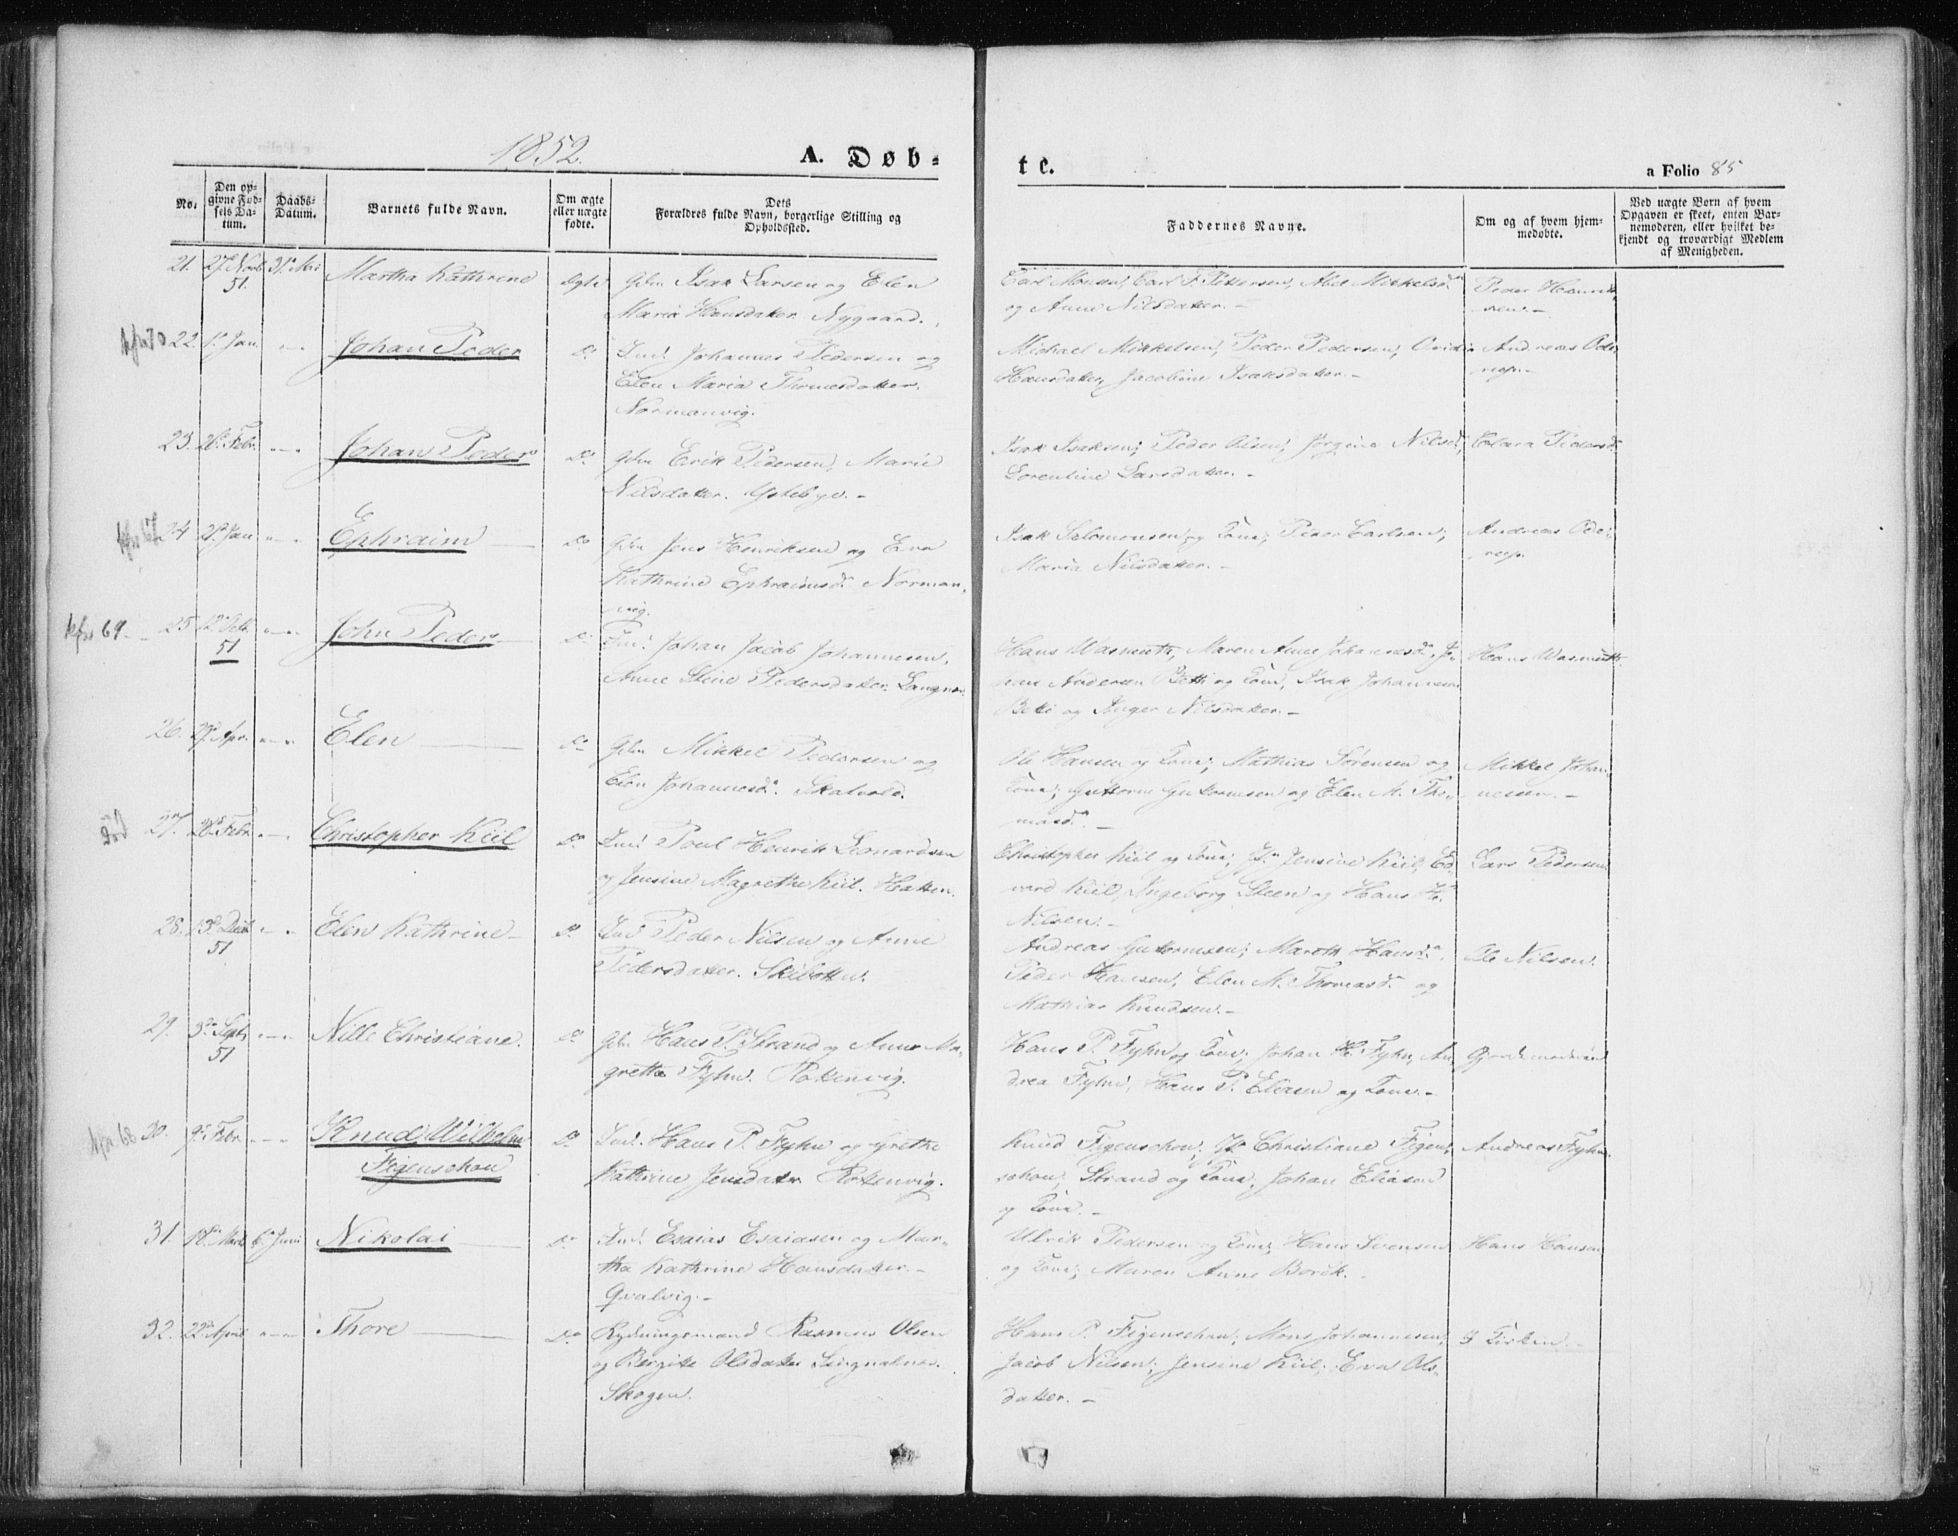 1852.
A. Døb-
te.
a Folio 85
No.
Den op-
givne Fød-
sels Da-
tum.
Daabs-
Datum.
Barnets fulde Navn.
Om ægte
eller uægte
fødte.
Dets
Forældres fulde Navn, borgerlige Stilling og
Opholdssted.
Faddernes Navne.
Om og af hvem hjem-
medøbte.
Ved uægte Børn af hvem
Opgaven er skeet, enten Bar-
nemoderen, eller hvilket be-
kjendt og troværdigt Medlem
af Menigheden.
21. 27de Novb 31te Mai Martha Kathrine Ægte Gbr Isak Larsen og Elen
51.
Maria Hansdatter Nygaard.
Carl Monsen; Carl F. Pettersen, Abel Mikkelsd.
og Anne Nilsdatter. –
Peder Henrik-
sen. –
22. 1te Jan. Johan Peder Do Ind. Johannes Pedersen og
Elen Maria Thomesdatter.
Normanvig.
Michael Mikkelsen; Peder Pedersen;
Hansdatter, Jacobine Isaksdatter. –
Andreas Ode-
resp. –
23. 26de Febr. Johan Peder Do Gbr Erik Pedersen, Marie
Nilsdatter. Ystebye. –
Isak Isaksen; Peder Olsen; Jørgine Nilsd.
Lorentine Larsdatter. –
Clara Pedersd.
24 Jan Ephraim Do Gbr Jens Henriksen og Eva
Kathrine Ephraimsd. Norman-
vig.
Isak Salomonsen og Kone; Peder Carlsen;
Maria Nilsdatter. –
Andreas Ode-
resp.
69. 25 12te John Peder Do Ind. Johan Jacob Johannesen,
51
Anne Stine Pedersdatter. Langnes.
Hans Wasmuth, Maren Anne Johannesd., Jo-
han Andersen Betti og Kone, Isak Johannesen
Betti og Inger Nilsdatter. –
Hans Wasmuth
26. Apr. Elen Do Gbr Mikkel Pedersen og
Elen Johannesd. Skatvold.
Ole Hansen og Kone; Mathias Sørensen og
Kone; Guttorm Guttormsen og Elen M. Tho-
masd. –
Mikkel Johan-
nessen. –
27. 28de Febr. Christopher Kiil Do Ind. Poul Henrik Leonardsen
og Jensine Magrethe Kiil. Hatten.
Christopher Kiil og Kone; Jfr Jensine Kiil; Ed-
vard Kiil, Ingeborg Steen og Hans H.
Nilsen. –
Lars Pedersen
28. 13de Decb Elen Kathrine Do Ind. Peder Nilsen og Anne
51
Pedersdatter. Skibotten.
Andreas Guttormsen; Mareth Hansd.
Peder Hansen, Elen M. Thomasd. og
Mathias Knudsen. –
Ole Nilsen.
29. 3de Septb Nille Christiane. Do Gbr Hans P. Strand og Anne Ma-
51
grethe Fyhn. Rakenvig.
Hans P. Fyhn og Kone; Johan H. Fyhn, An-
drea Fyhn, Hans P. Eliasen og Kone. –
Gjordemoderen
68 30. 9de Febr. Knud Wilhelm Do Ind. Hans P. Fyhn og Grethe
Figenschou
Kathrine Jensdatter Rakenvig.
Knud Figenschou; Jfr Christiane Figen-
schou; Strand og Kone, Johan Eliasen
og Kone. –
Andreas Fyhn.
31. 18de Marts 6te Juni Nikolai Do Ind. Esaias Esaiasen og Mar-
tha Kathrine Hansdatter. –
Qvalvig. –
Ulrik Pedersen og Kone; Hans Svensen
og Kone; Maren Anne Borik. –
Hans Hansen
32. 22de April Thore Do Rydningsmand Rasmus Olsen
og Birgitte Olsdatter
Skogen.
Hans P. Figenschou; Mons Johannesen;
Jacob Nilsen; Jensine Kiil; Eva Ols-
datter. –
I Kirken. –